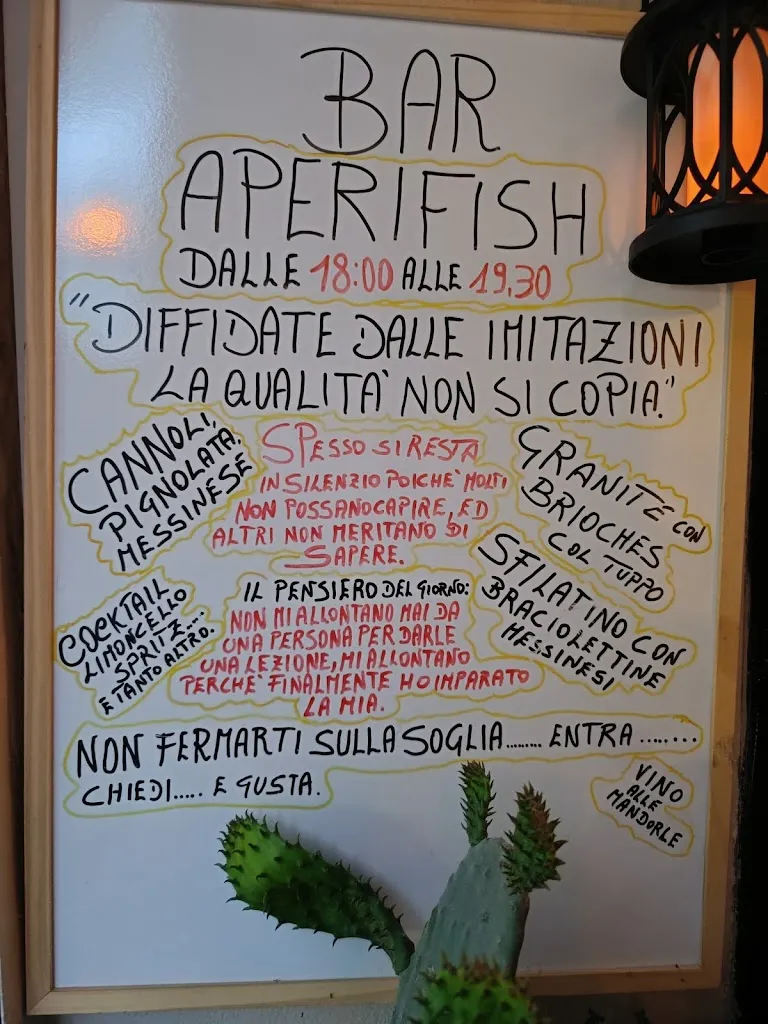 BAR
APERIFISH
DALLE 18:00 ALLE 19,30
"DIFFIDATE DALLE IMITAZIONI
LA QUALITA' NON SI COPIA."
CANNOLI,
PIGNOLATA,
MESSINESE
SPESSO SI RESTA
IN SILENZIO POICHE' MOLTI
NON POSSANO CAPIRE, ED
ALTRI NON MERITANO DI
SAPERE.
GRANITE CON
BRIOCHES
COL TUPPO
SFILATINO CON
BRACIOLETTINE
MESSINESI
COCKTAIL
LIMONCELLO
SPRITZ....
E TANTO ALTRO.
IL PENSIERO DEL GIORNO:
NON MI ALLONTANO MAI DA
UNA PERSONA PER DARLE
UNA LEZIONE, MI ALLONTANO
PERCHE' FINALMENTE HO IMPARATO
LA MIA.
NON FERMARTI SULLA SOGLIA......... ENTRA ........
CHIEDI..... E GUSTA.
VINO
ALLE
MANDORLE